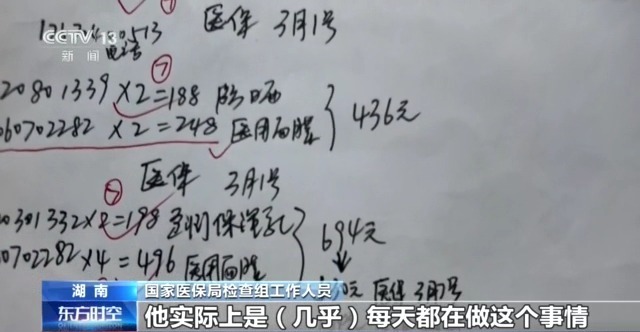 CCTV 13
新闻
医保 3月1号
电话
⑦
20801339 ×2=188
60702282 ×2=248 医用面膜
436元
医保 3月1号
20301332×2=198
0702282×4=496 医用面膜
694元
医保
湖南
国家医保局检查组工作人员
东方时空
他实际上是（几乎）每天都在做这个事情